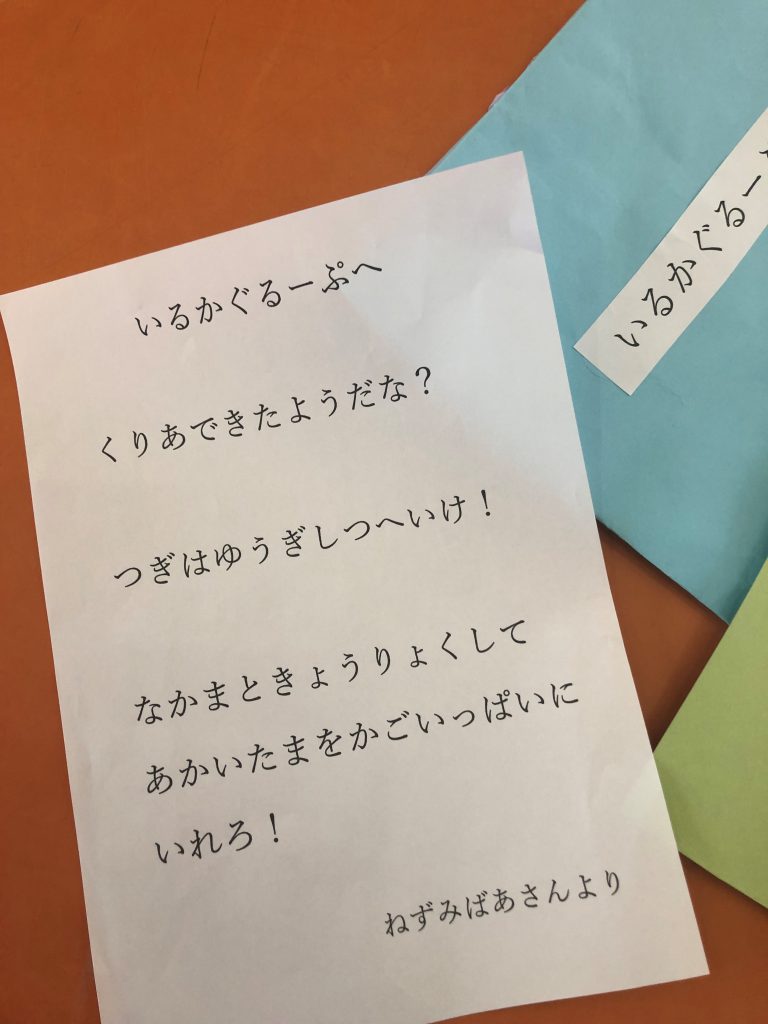 いるかぐるーぷへ
くりあできたようだな？
つぎはゆうぎしつへいけ！
なかまときょうりょくして
あかいたまをかごいっぱいに
いれろ！
ねずみばあさんより
いるかぐるー